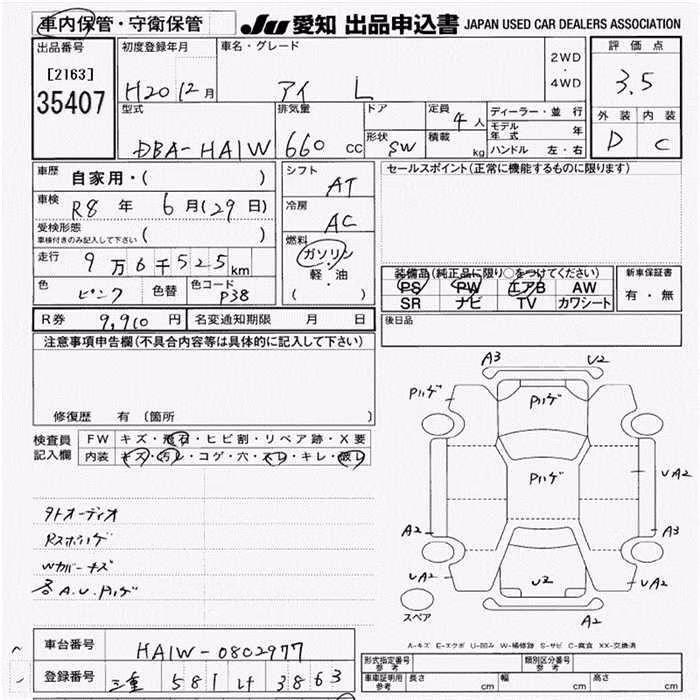 車内保管・守衛保管
JU 愛知 出品申込書 JAPAN USED CAR DEALERS ASSOCIATION
出品番号
[2163]
35407
初度登録年月
H20 12月
車名・グレード
アイ L
2WD
・
4WD
評価点
3.5
外装 内装
D C
型式
DBA-HA1W
排気量
660 cc
ドア
形状
SW
定員
4人
積載
kg
ディーラー・並行
モデル年式 年
ハンドル 左・右
車歴
自家用・( )
車検
R8年 6月(29日)
受検形態
車検付きのみ記入して下さい ( )
走行
9万6千525km
色
ピンク
色替
色コード
P38
シフト
AT
冷房
AC
燃料
ガソリン
軽・油
( )
セールスポイント(正常に機能するものに限ります)
装備品(純正品に限り○をつけてください)
PS PW エアB AW
SR ナビ TV カワシート
新車保証書
有・無
R券 9,910円 名変通知期限 月 日
後日品
注意事項申告欄(不具合内容等は具体的に記入して下さい)
修復歴 有 〔箇所 〕
検査員
記入欄
FW キズ・飛石・ヒビ割・リペア跡・X要
内装 キズ・汚レ・コゲ・穴・スレ・キレ・破レ
外オーディオ
Rスポハゲ
Wカバーキズ
各A.U.Pハゲ
A3 U2
Pハゲ Pハゲ
Pハゲ
UA2
A2 A3
UA2 U2 UA2
スペア
A2
A-キズ E-エクボ U-凹み W-補修跡 S-サビ C-腐食 XX-交換済
車台番号
HA1W-0802977
登録番号
三重 581 け 3863
形式指定番号
参考
類別区分番号
参考
車庫証明用
参考
長さ cm 幅 cm 高さ cm